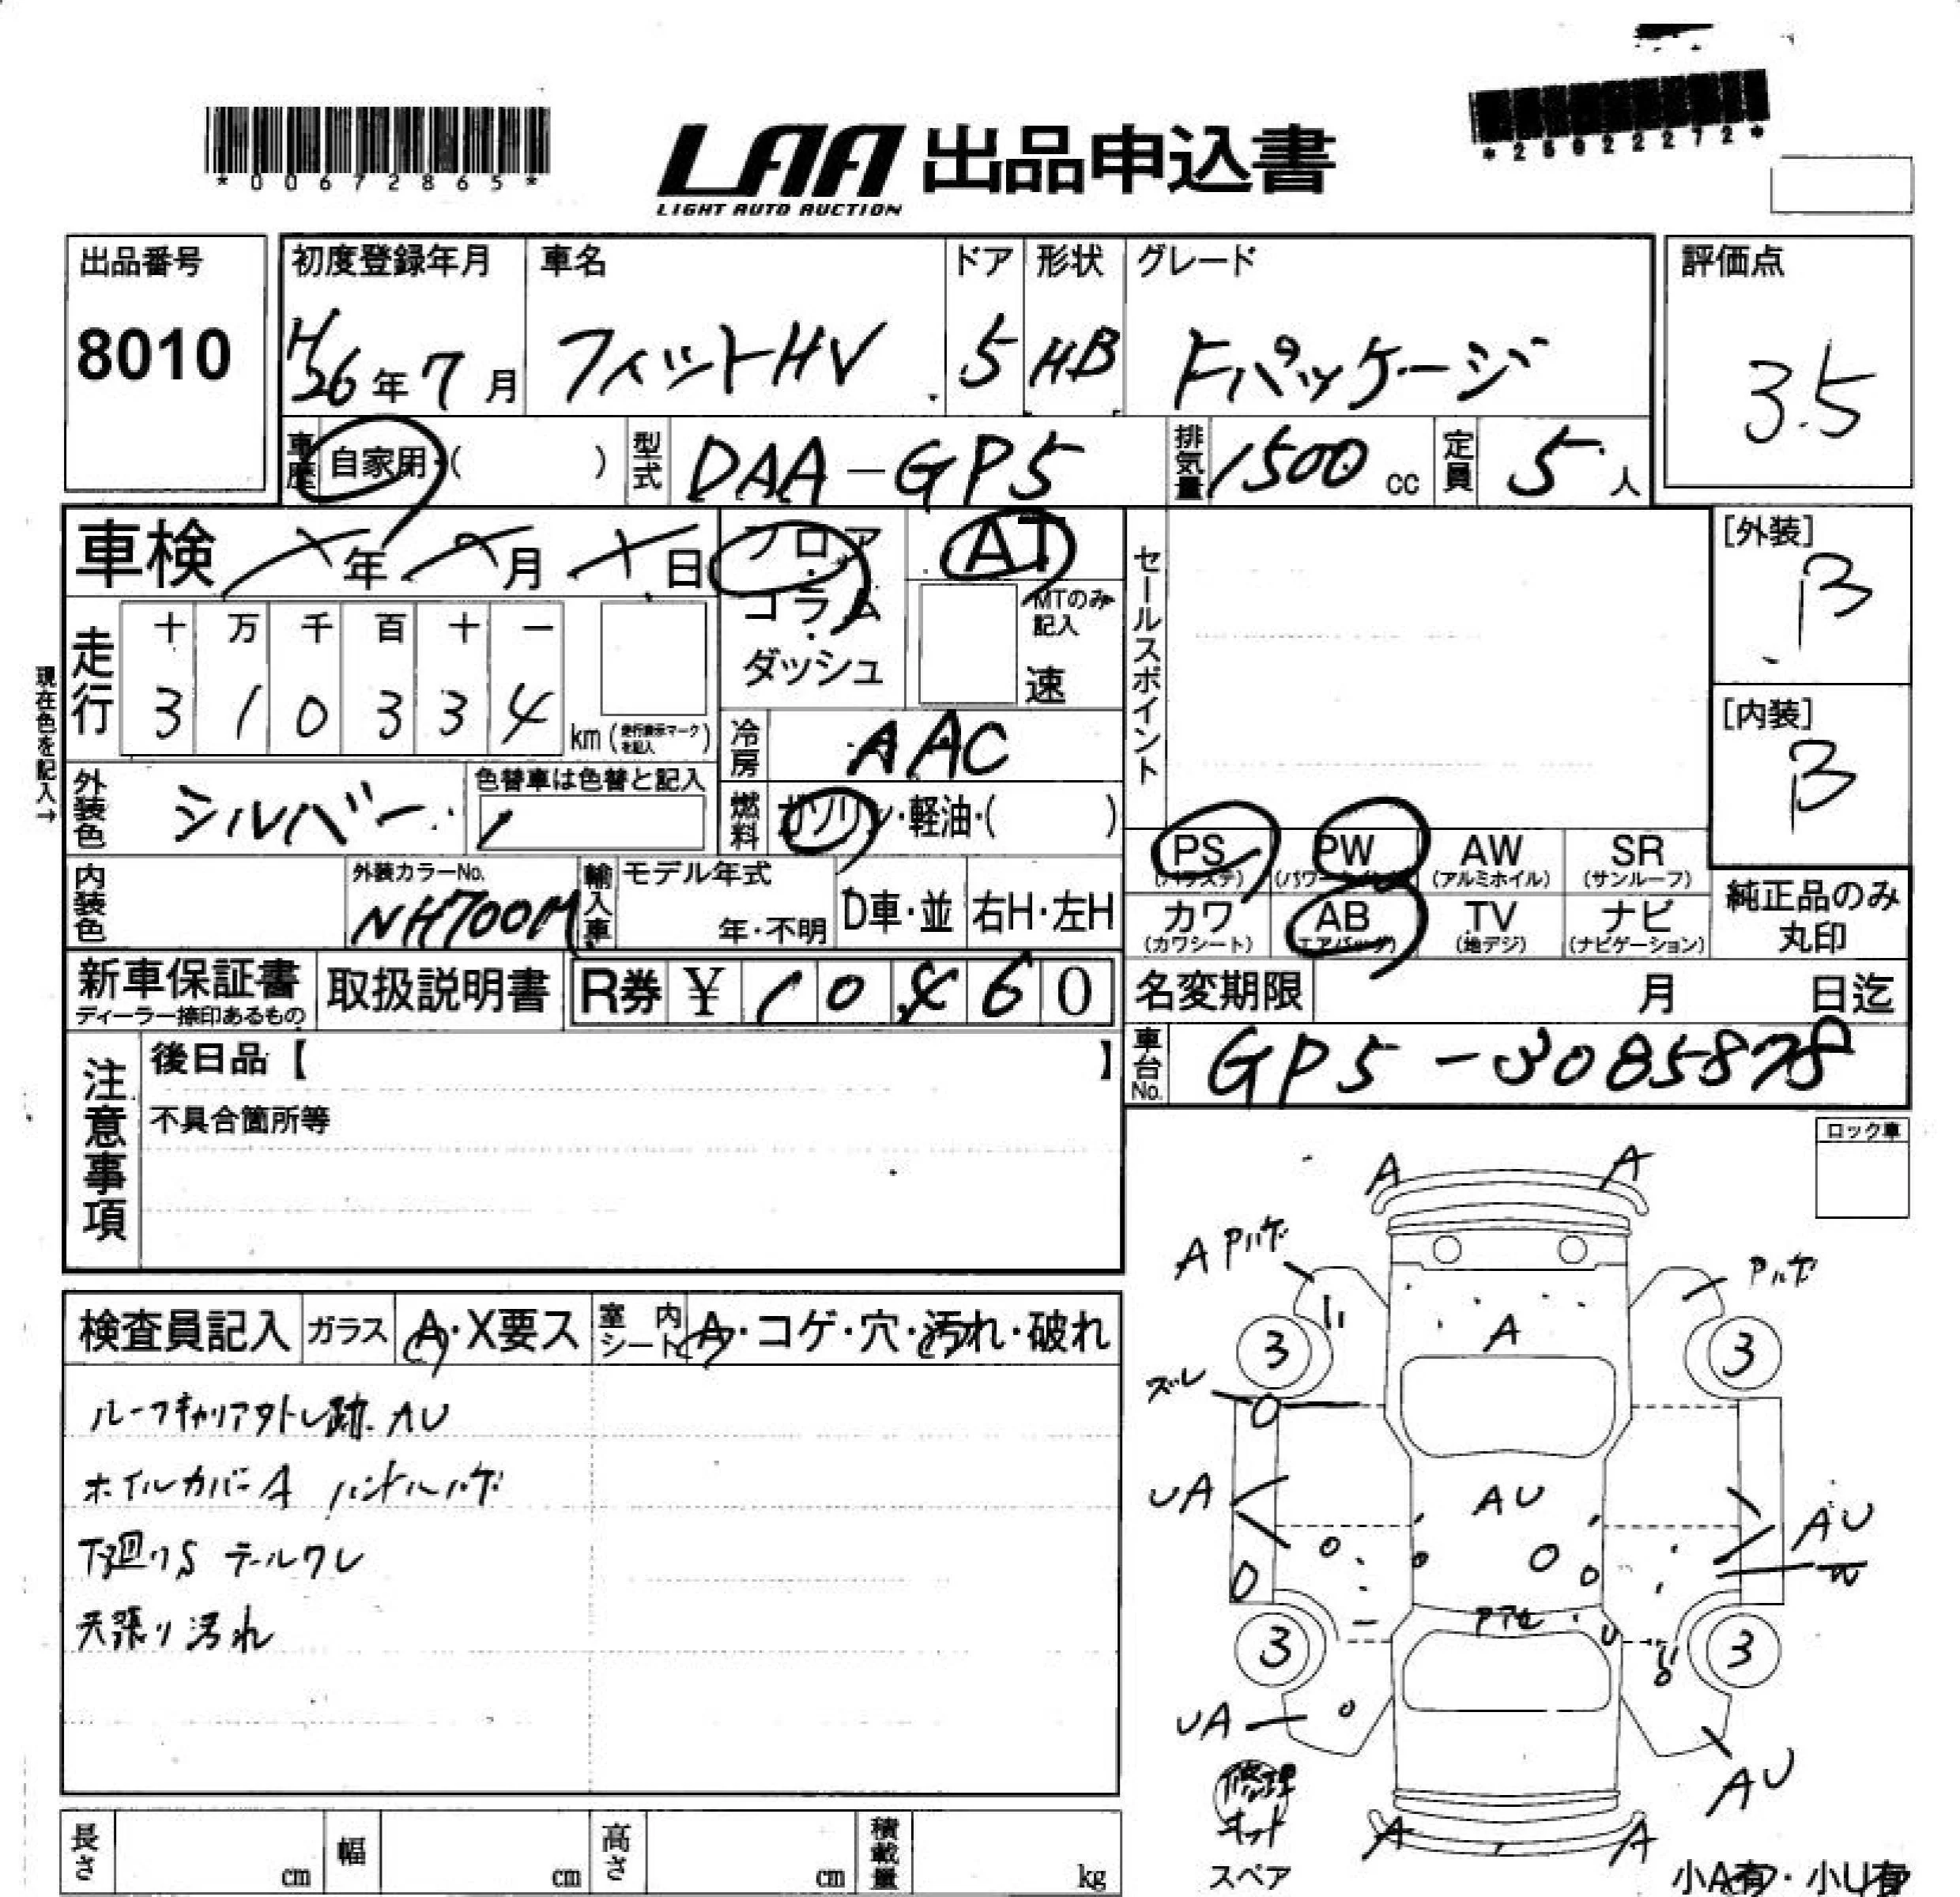 *00672865*
LAA 出品申込書
LIGHT AUTO AUCTION
出品番号
8010
初度登録年月
H26年7月
車名
フィットHV
ドア
5
形状
HB
グレード
Fパッケージ
評価点
3.5
車歴 自家用・( )
型式 DAA-GP5
排気量 1500 cc
定員 5 人
車検 年 月 日
フロア・コラム・ダッシュ
AT
MTのみ記入
速
走行
十 万 千 百 十 一
3 1 0 3 3 4
km (走行表示マークを記入)
現在色を記入→
冷房 AAC
外装色 シルバー
色替車は色替と記入
燃料 ガソリン・軽油・( )
内装色
外装カラーNo.
NH700M
輸入車
モデル年式
年・不明
D車・並
右H・左H
セールスポイント
[外装]
B
[内装]
B
PS (パワステ)
PW
AW (アルミホイル)
SR (サンルーフ)
カワ (カワシート)
AB (エアバッグ)
TV (地デジ)
ナビ (ナビゲーション)
純正品のみ
丸印
新車保証書
ディーラー捺印あるもの
取扱説明書
R券 ¥
名変期限 月 日迄
車台No. GP5-3085878
注意事項
後日品【 】
不具合箇所等
ロック車
検査員記入
ガラス A・X要ス
室内シート A・コゲ・穴・汚れ・破れ
ルーフキャリア外し跡 AU
ホイルカバーA ハンドルハゲ
下廻りS テールワレ
天張り汚れ
A A
A Pハゲ
Pハゲ
A
3 3
ズレ
UA
AU
AU
W
3 3
UA
AU
A A
修理キット
スペア
小A有・小U有
長さ cm
幅 cm
高さ cm
積載量 kg